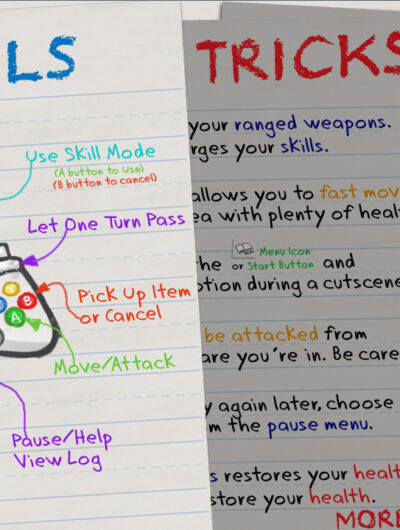 LS
Use Skill Mode
(A button to Use)
(B button to cancel)
Let One Turn Pass
Y
B
A
Pick Up Item
or Cancel
Move/Attack
Pause/Help
View Log
TRICKS
your ranged weapons.
rges your skills.
allows you to fast mov
ea with plenty of heal
the or Menu Icon
Start Button and
ption during a cutscene
be attacked from
are you're in. Be care
y again later, choose
m the pause menu.
s restores your healt
store your health.
MORE